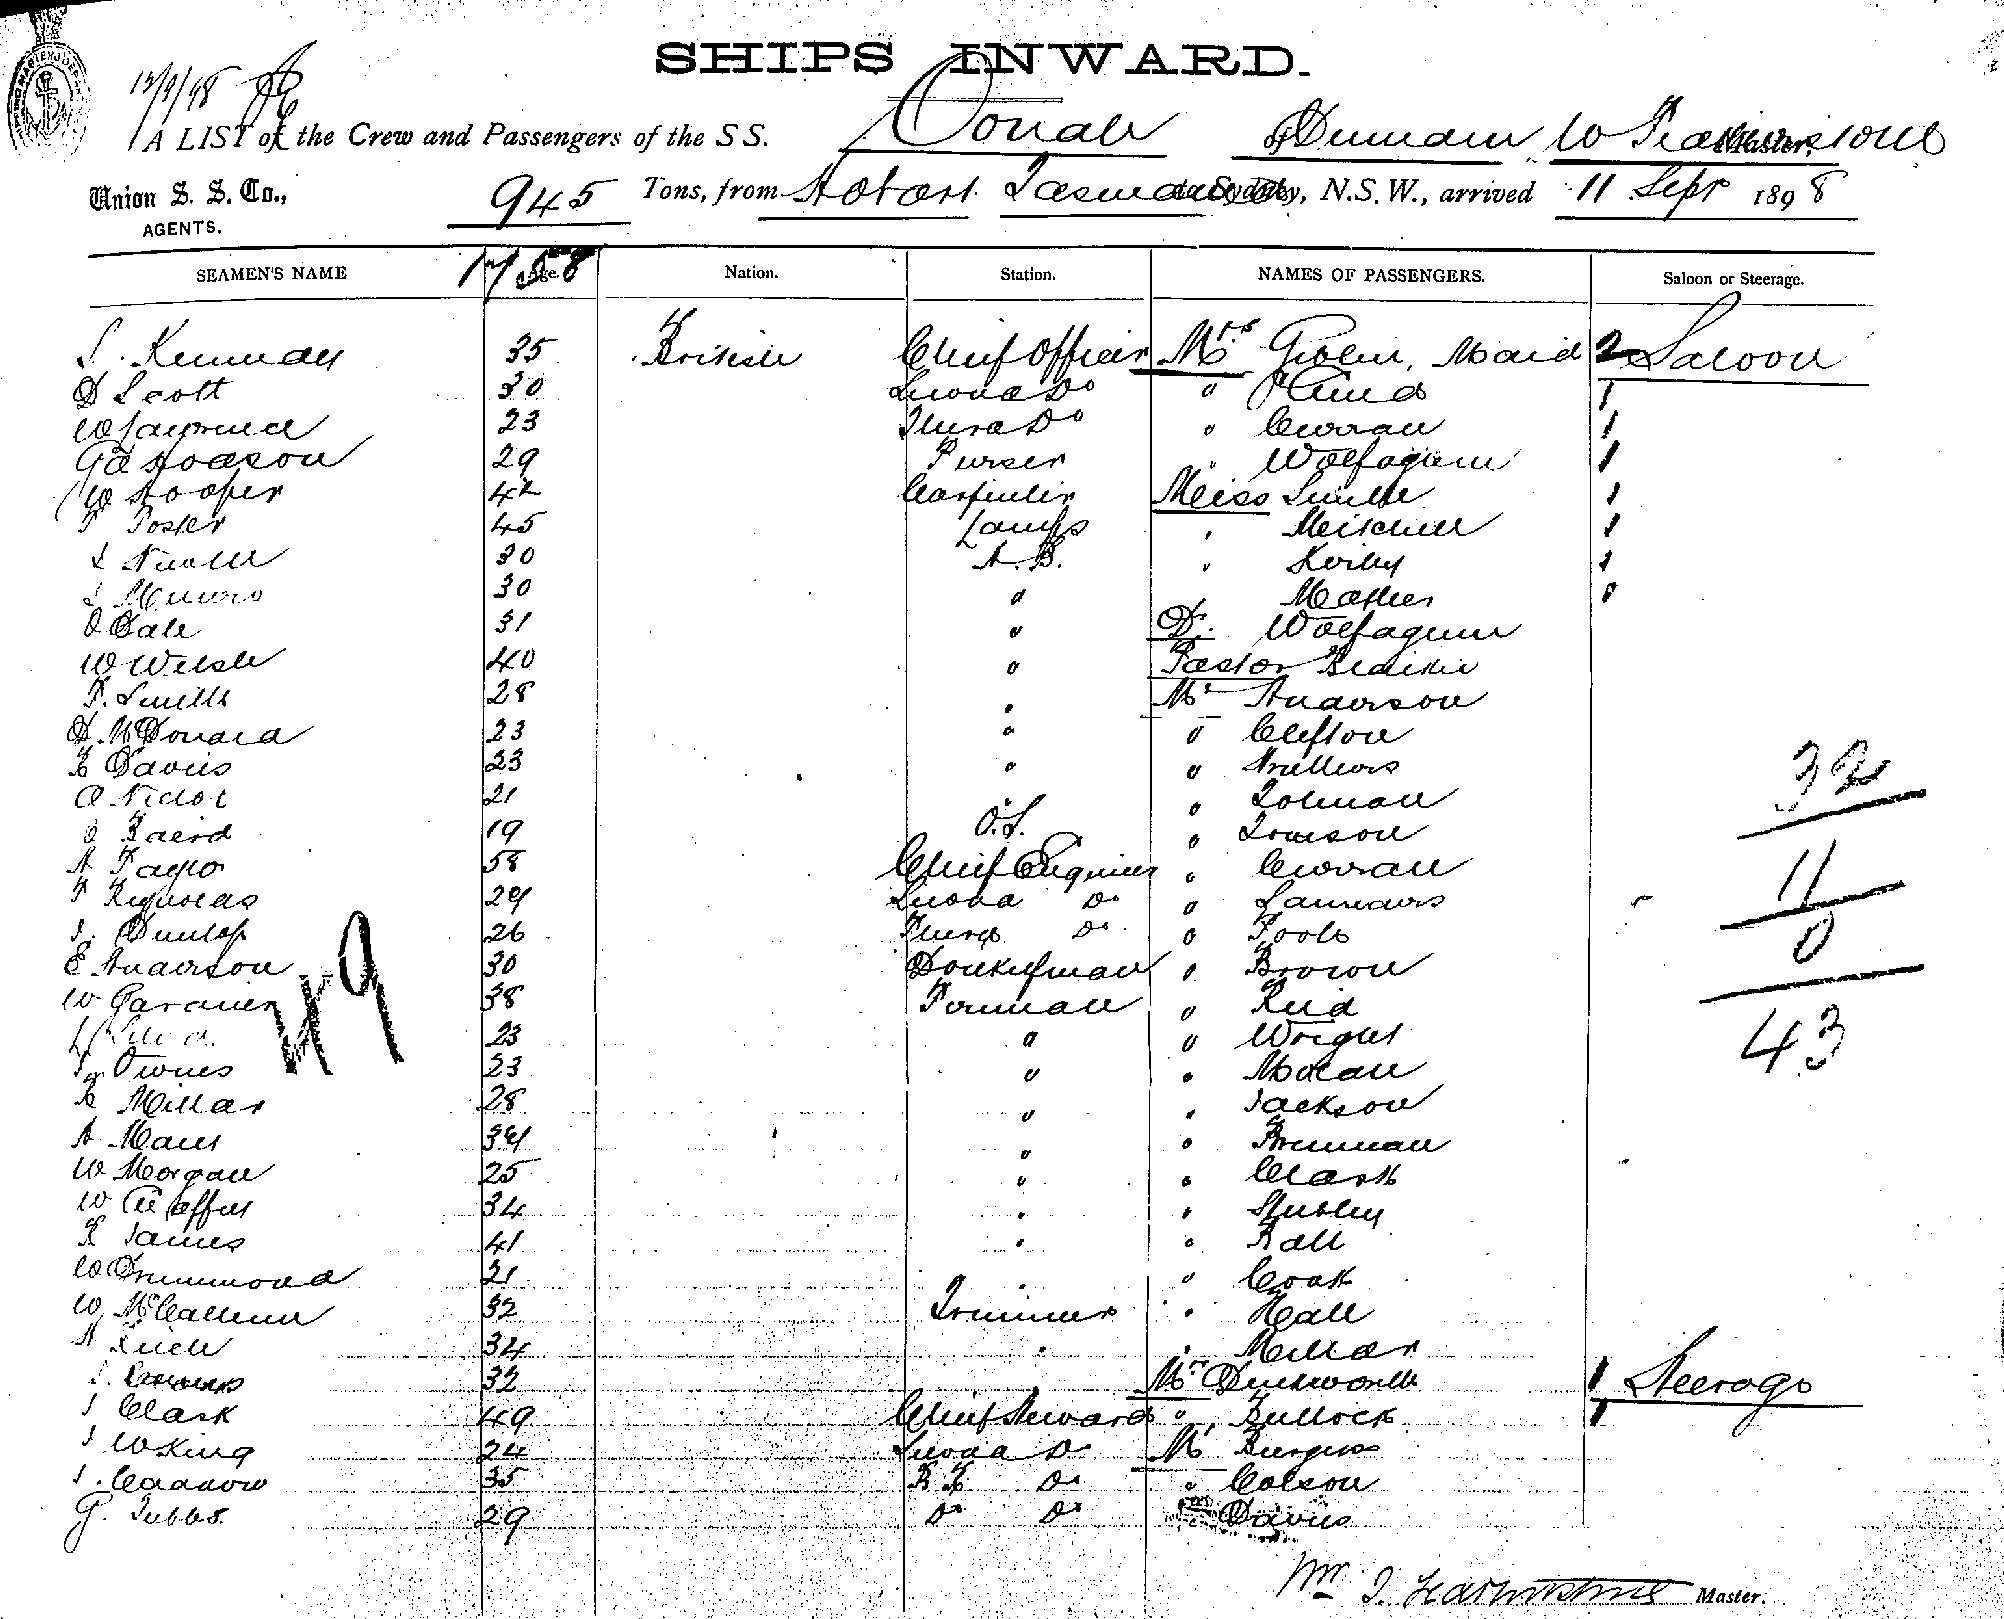 SHIPS INWARD.
12/9/98
A LIST of the Crew and Passengers of the SS. Oonah of Dunedin W Master,
Union S. S. Co., AGENTS. 945 Tons, from Hobart Tasmania to Sydney, N.S.W., arrived 11 Sept 1898
1758
SEAMEN'S NAME Age. Nation. Station. NAMES OF PASSENGERS. Saloon or Steerage.
S. Kennedy 35 British Chief Officer Mrs Maid 2 Saloon
D Scott 30 Second Do " 1
W Lawrence 23 Third Do " Curran 1
29 Purser " Wolfhagen 1
W Hooper 42 Carpenter Miss Smith 1
Foster 45 Lamps " Mitchell 1
30 A.B. " Kirby 1
Munro 30 " " Mather 1
Dale 31 " Dr. Wolfhagen
W Welsh 40 " Pastor
F. Smith 28 " Mr Anderson
D. McDonald 23 " " Clifton
Davies 23 " "
A Nicol 21 " " Tolman
Baird 19 O.S. "
A 58 Chief Engineer " Curran
Reynolds 29 Second Do "
Dunlop 26 Third Do " Poole
E Anderson 30 Donkeyman " Brown
W Gardiner 38 Foreman " Reid
23 " " Wright
23 " "
Millar 28 " " Jackson
A 34 " " Brennan
W Morgan 25 " " Clark
W 34 " "
R James 41 " " Ball
W Drummond 21 " " Cook
W McCallum 32 Trimmer " Hall
A 34 " " Millar
32 Mrs Duckworth 1 Steerage
Clark 49 Chief Steward " Bullock 1
W King 24 Second Do Mr Burgess
35 Do " Colson
G. Tubbs 29 Do Do " Davies
49
32
11
0
43
Wm J. Master.